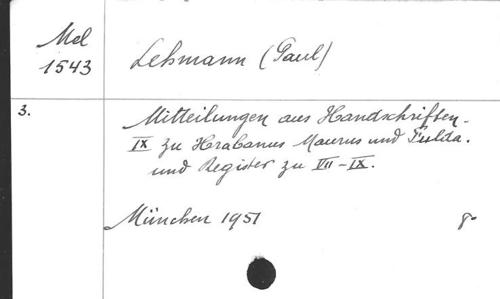 Mel
1543
Lehmann (Paul)
3.
Mitteilungen aus Handschriften.
IX zu Hrabanus Maurus und Fulda.
und Register zu VII-IX.
München 1951
8°